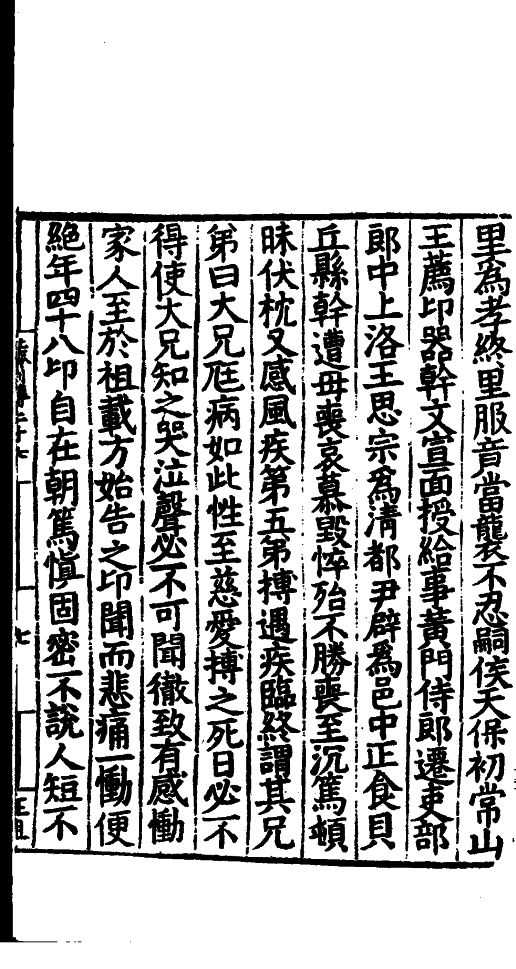 里為孝終里服竟當襲不忍嗣侯天保初常山
王薦卬器幹文宣面授給事黃門侍郎遷吏部
郎中上洛王思宗為清都尹辟為邑中正食貝
丘縣幹遭母喪哀慕毀悴殆不勝喪至沉篤頓
昧伏枕又感風疾第五弟摶遇疾臨終謂其兄
弟曰大兄尫病如此性至慈愛摶之死日必不
得使大兄知之哭泣聲必不可聞徹致有感慟
家人至於祖載方始告之卬聞而悲痛一慟便
絕年四十八卬自在朝篤慎固密不說人短不
七